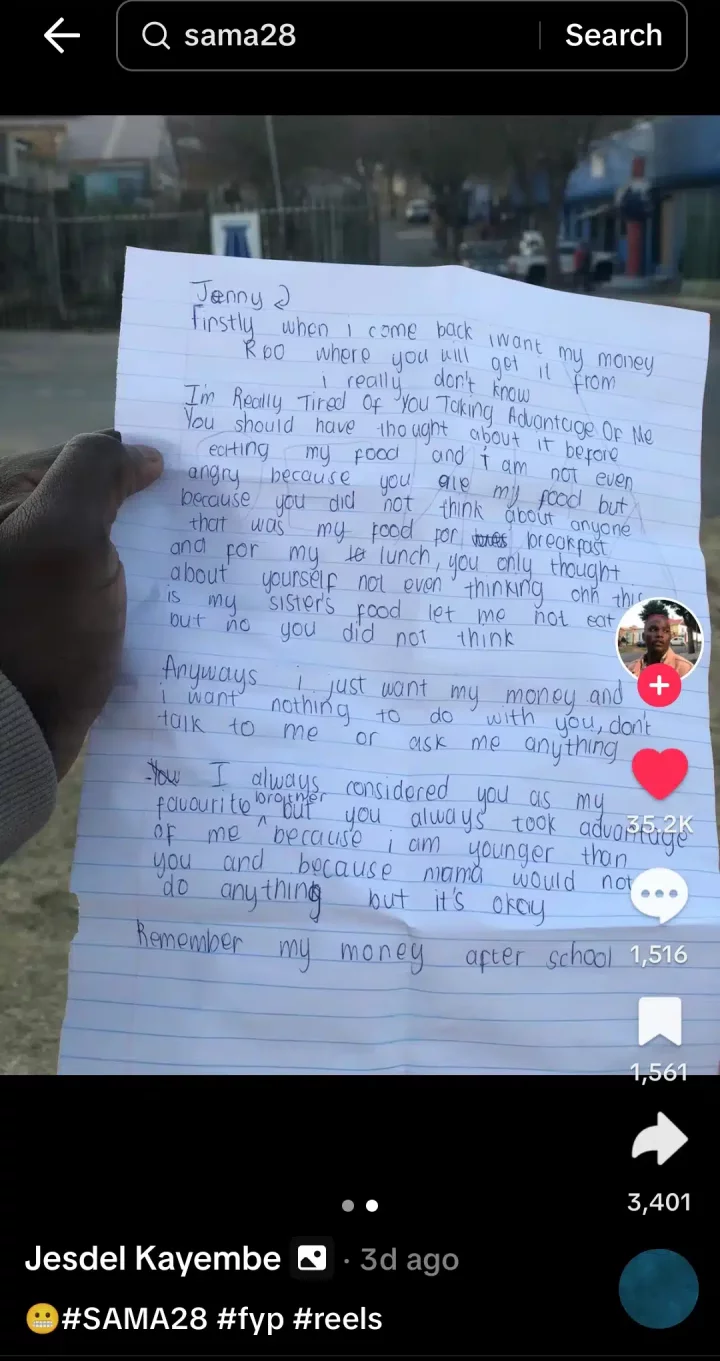 sama28
Search
Jenny
Firstly when i come back i want my money
where you will get it from
i really don't know
I'm Really Tired Of You Taking Advantage Of Me
You should have thought about it before
eating my food and I am not even
angry because you ate my food but
because you did not think about anyone
that was my food for breakfast
and for my lunch, you only thought
about yourself not even thinking ohh this
is my sister's food let me not eat
but no you did not think
Anyways i just want my money and
i want nothing to do with you, don't
talk to me or ask me anything
You I always considered you as my
favourite brother but you always took advantage
of me because i am younger than
you and because mama would not
do anything but it's okay
Remember my money after school
35.2K
1,516
1,561
3,401
Jesdel Kayembe · 3d ago
😬#SAMA28 #fyp #reels